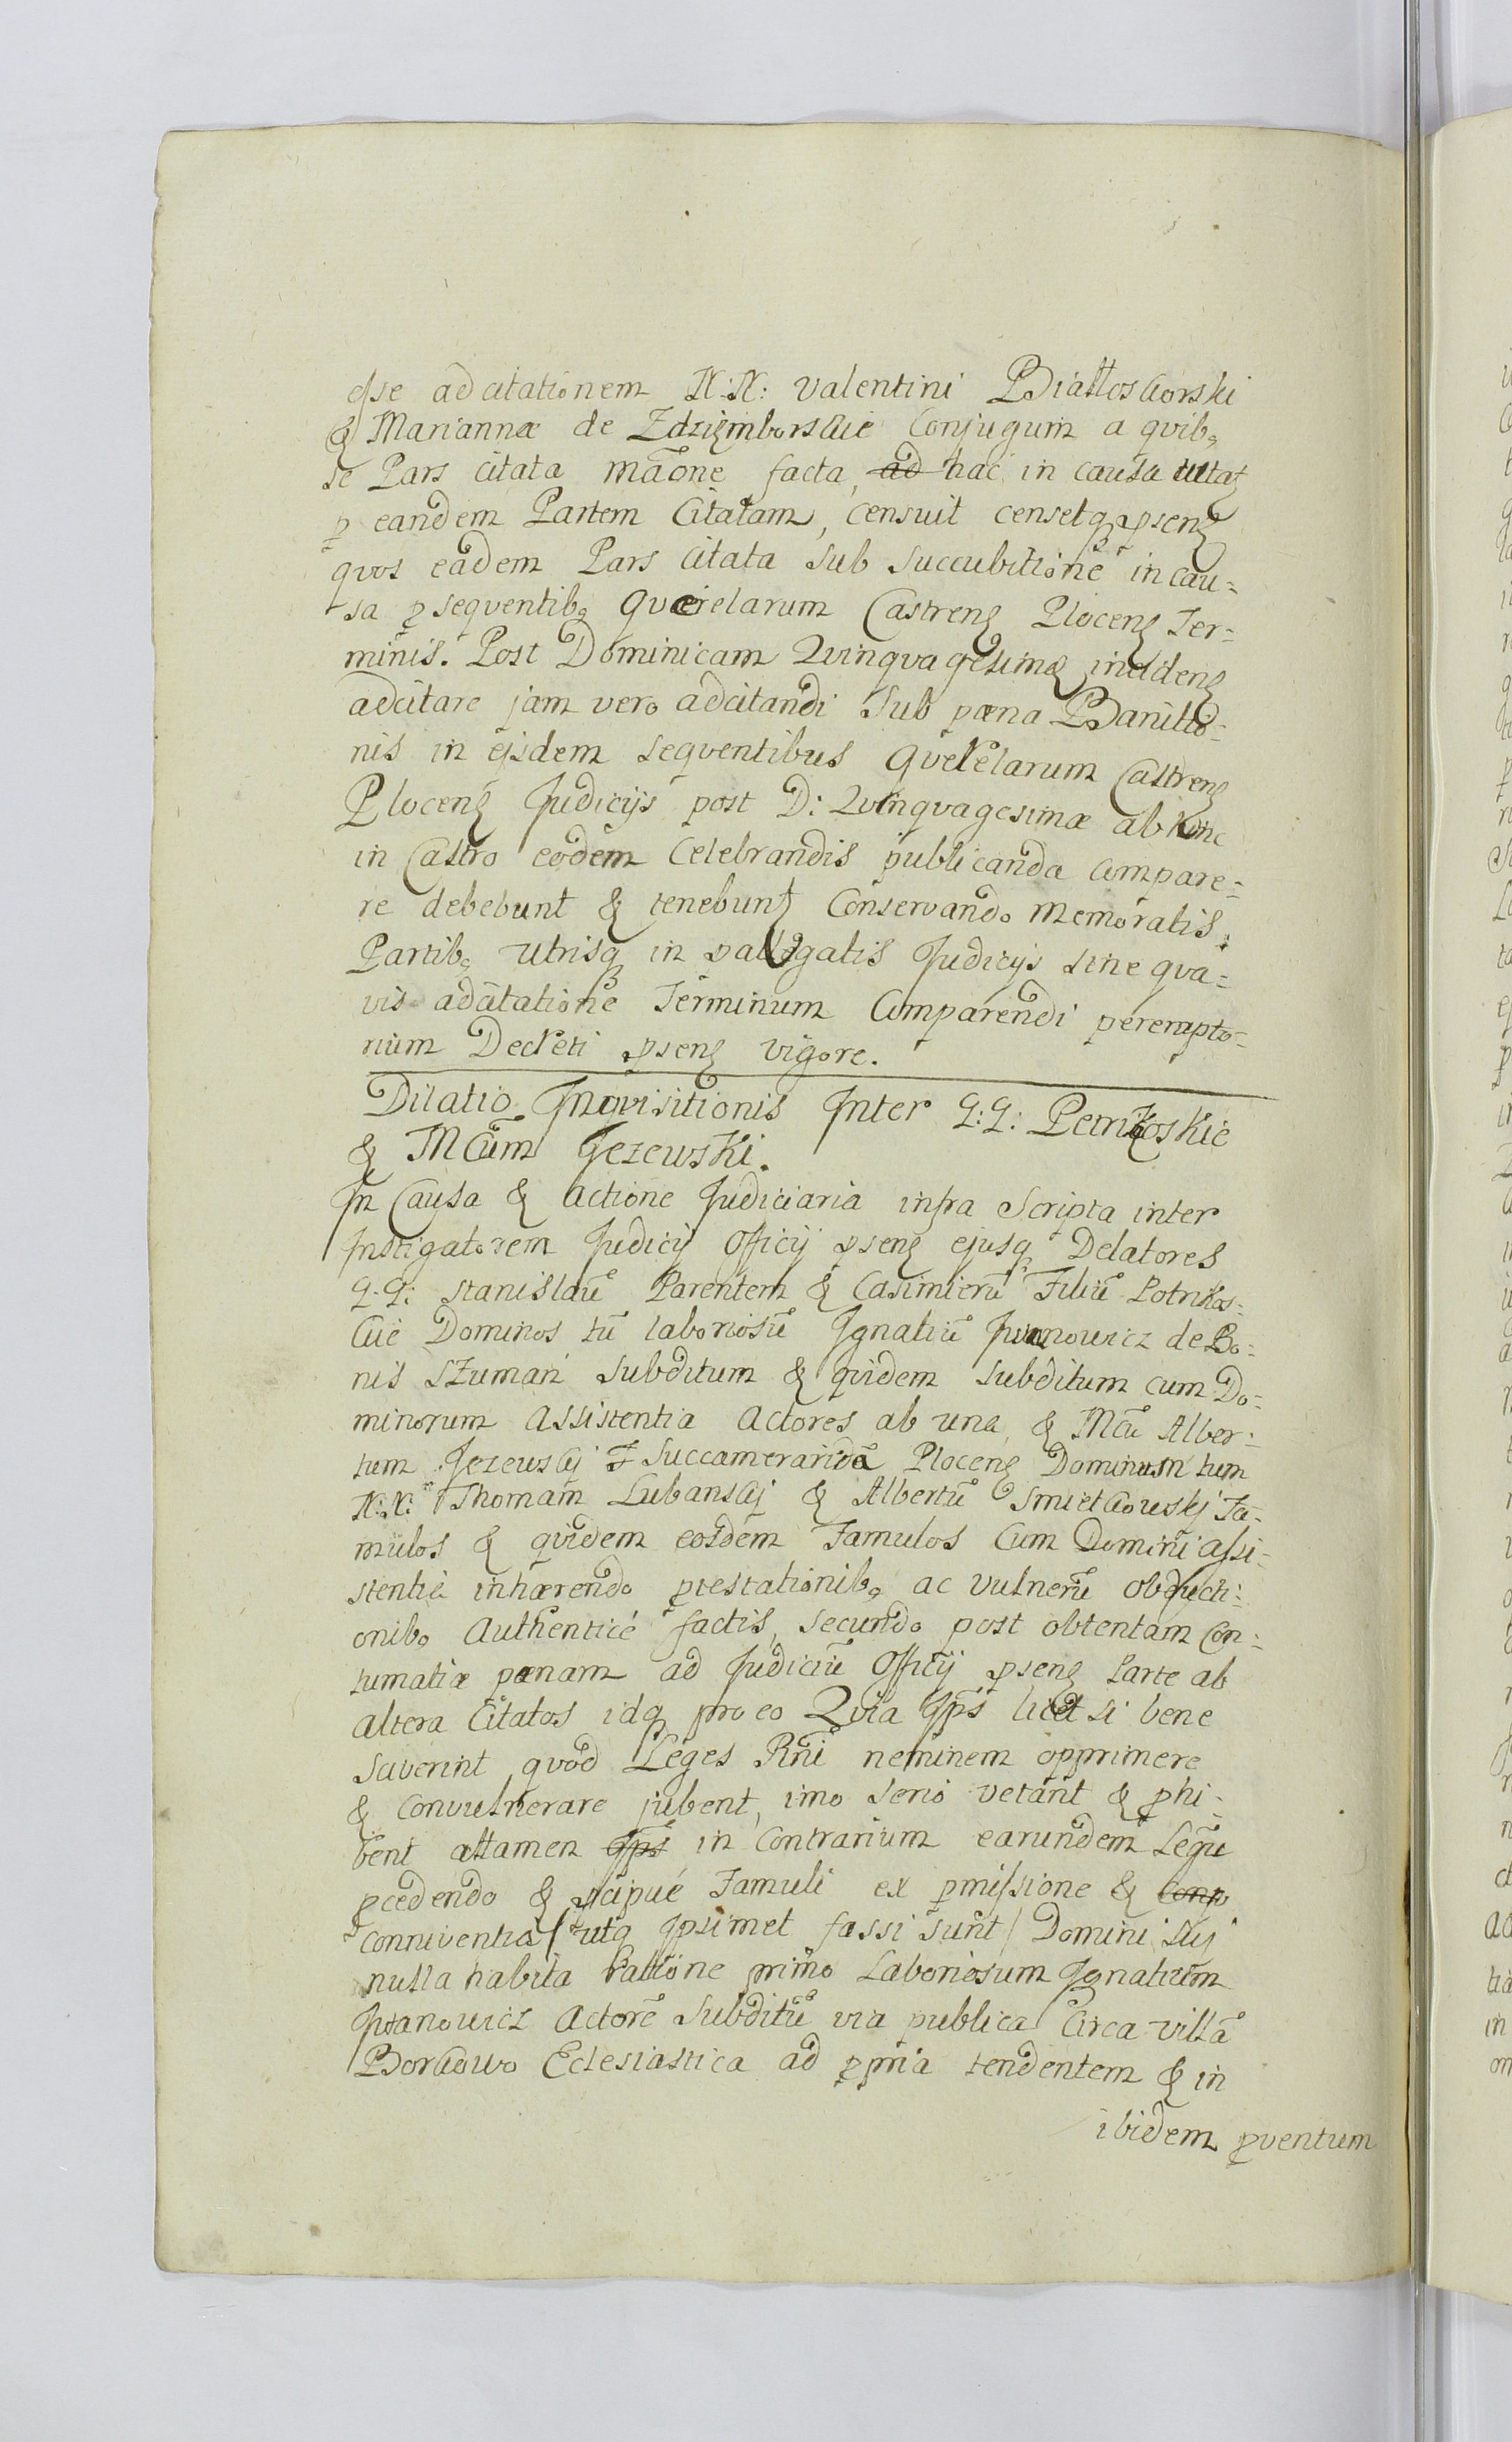 esse adcitationem N: N: Valentini Białłoskorski
& Mariannæ de Zdzięmborskie Conjugum a qvibq
se Pars citata mãone facta, ad hac in causa
p eandem Partem Citatam, censuit censetq psenz
qvos eadem Pars citata sub succubitione in cau-
sa p seqventibq Qværelarum Castrenz Plocenz Ter-
minis. Post Dominicam Qvinqvagesimæ incidenz
adcitare jam vero adcitandi sub pæna Banitio-
nis in ejsdem seqventibus Qverelarum Castrenz
Plocenz Judicijs post D: Qvinqvagesimæ ab hinc
in Castro eodem Celebrandis publicanda compare-
re debebunt & tenebunt Conservando memoratis
Partibq utrisq in Judicijs sine qva-
vis adcitatione Terminum Comparendi perempto-
rium Decreti psenz vigore.
Dilatio Inqvisitionis Inter G: G:
& Mcum Jezewski.
In Causa & Actione Judiciaria infra Scripta inter
Instigatorem Judicij Officij psenz ejusq Delatores
G: G: Stanislaũ Parentem & Casimierũ Filiũ Potrikos-
cie Dominos tũ laboriosũ Ignatiũ Iwanowicz de Bo-
nis Szuman subditum & qvidem subditum cum Do-
minorum Assistentia Actores ab una & Mcũ Alber-
tum Jezewskj Succameraridã Plocenz Dominum tum
N: N: Thomam Lubanskj & Albertũ Smietkowskj Fa-
mulos & qvidem eosdem Famulos Cum Domini assi-
stentia inhærendo ptestationibq ac vulnerũ obducti-
onibq Authenticé factis, secundo post obtentam con-
tumatiæ pænam ad Judiciũ Officij psenz Parte ab
altera Citatos idq pro eo Qvia Ips̃i licet si bene
sciverint qvod Leges Rñi neminem opprimere
& convulnerare jubent, imo serio vetant & phi-
bent attamen Ips̃i in Contrarium earundem Legũ
pcedendo & pcipué Famuli ex pmissione & comp
conniventia / utq Ipsimet fassi sunt / Domini sui
nulla habita Ratione primo Laboriosum Ignatium
Iwanowicz Actorẽ Subditũ via publica Circa villã
Borkowo Eclesiastica ad ppria tendentem & in
ibidem pventum